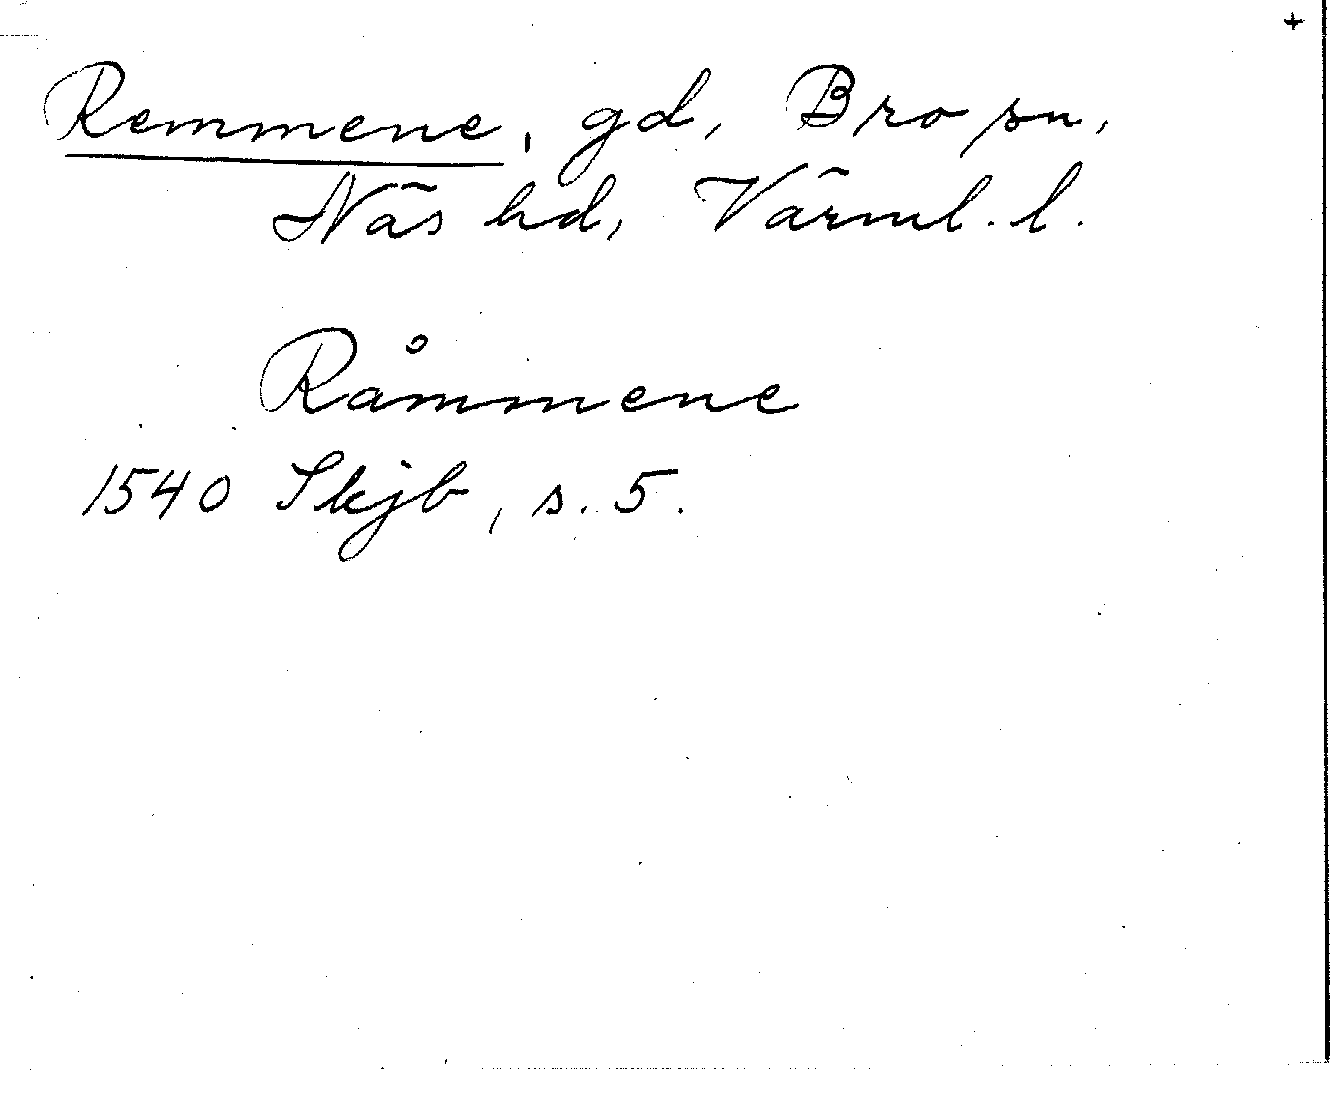 +
Remmene, gd, Bro sn,
Näs hd, Värml. l.
Råmmene
1540 Skjb, s. 5.